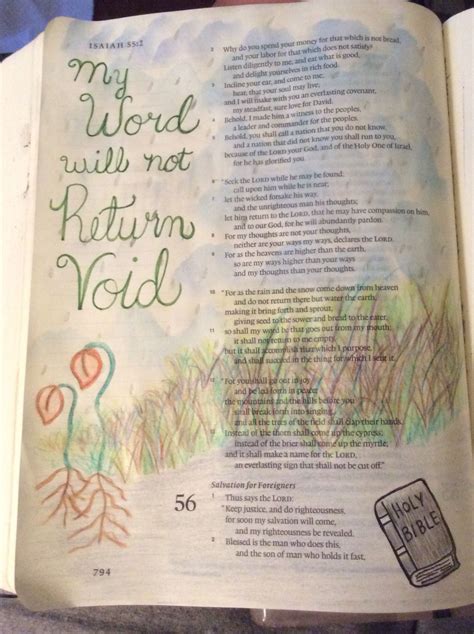 ISAIAH 55:2
My
Word
will not
Return
Void
2 Why do you spend your money for that which is not bread,
and your labor for that which does not satisfy?
Listen diligently to me, and eat what is good,
and delight yourselves in rich food.
3 Incline your ear, and come to me;
hear, that your soul may live;
and I will make with you an everlasting covenant,
my steadfast, sure love for David.
4 Behold, I made him a witness to the peoples,
a leader and commander for the peoples.
5 Behold, you shall call a nation that you do not know,
and a nation that did not know you shall run to you,
because of the LORD your God, and of the Holy One of Israel,
for he has glorified you.
6 "Seek the LORD while he may be found;
call upon him while he is near;
7 let the wicked forsake his way,
and the unrighteous man his thoughts;
let him return to the LORD, that he may have compassion on him,
and to our God, for he will abundantly pardon.
8 For my thoughts are not your thoughts,
neither are your ways my ways, declares the LORD.
9 For as the heavens are higher than the earth,
so are my ways higher than your ways
and my thoughts than your thoughts.
10 "For as the rain and the snow come down from heaven
and do not return there but water the earth,
making it bring forth and sprout,
giving seed to the sower and bread to the eater,
11 so shall my word be that goes out from my mouth;
it shall not return to me empty,
but it shall accomplish that which I purpose,
and shall succeed in the thing for which I sent it.
12 "For you shall go out in joy
and be led forth in peace;
the mountains and the hills before you
shall break forth into singing,
and all the trees of the field shall clap their hands.
13 Instead of the thorn shall come up the cypress;
instead of the brier shall come up the myrtle;
and it shall make a name for the LORD,
an everlasting sign that shall not be cut off."
Salvation for Foreigners
56 1 Thus says the LORD:
"Keep justice, and do righteousness,
for soon my salvation will come,
and my righteousness be revealed.
2 Blessed is the man who does this,
and the son of man who holds it fast,
HOLY
BIBLE
794